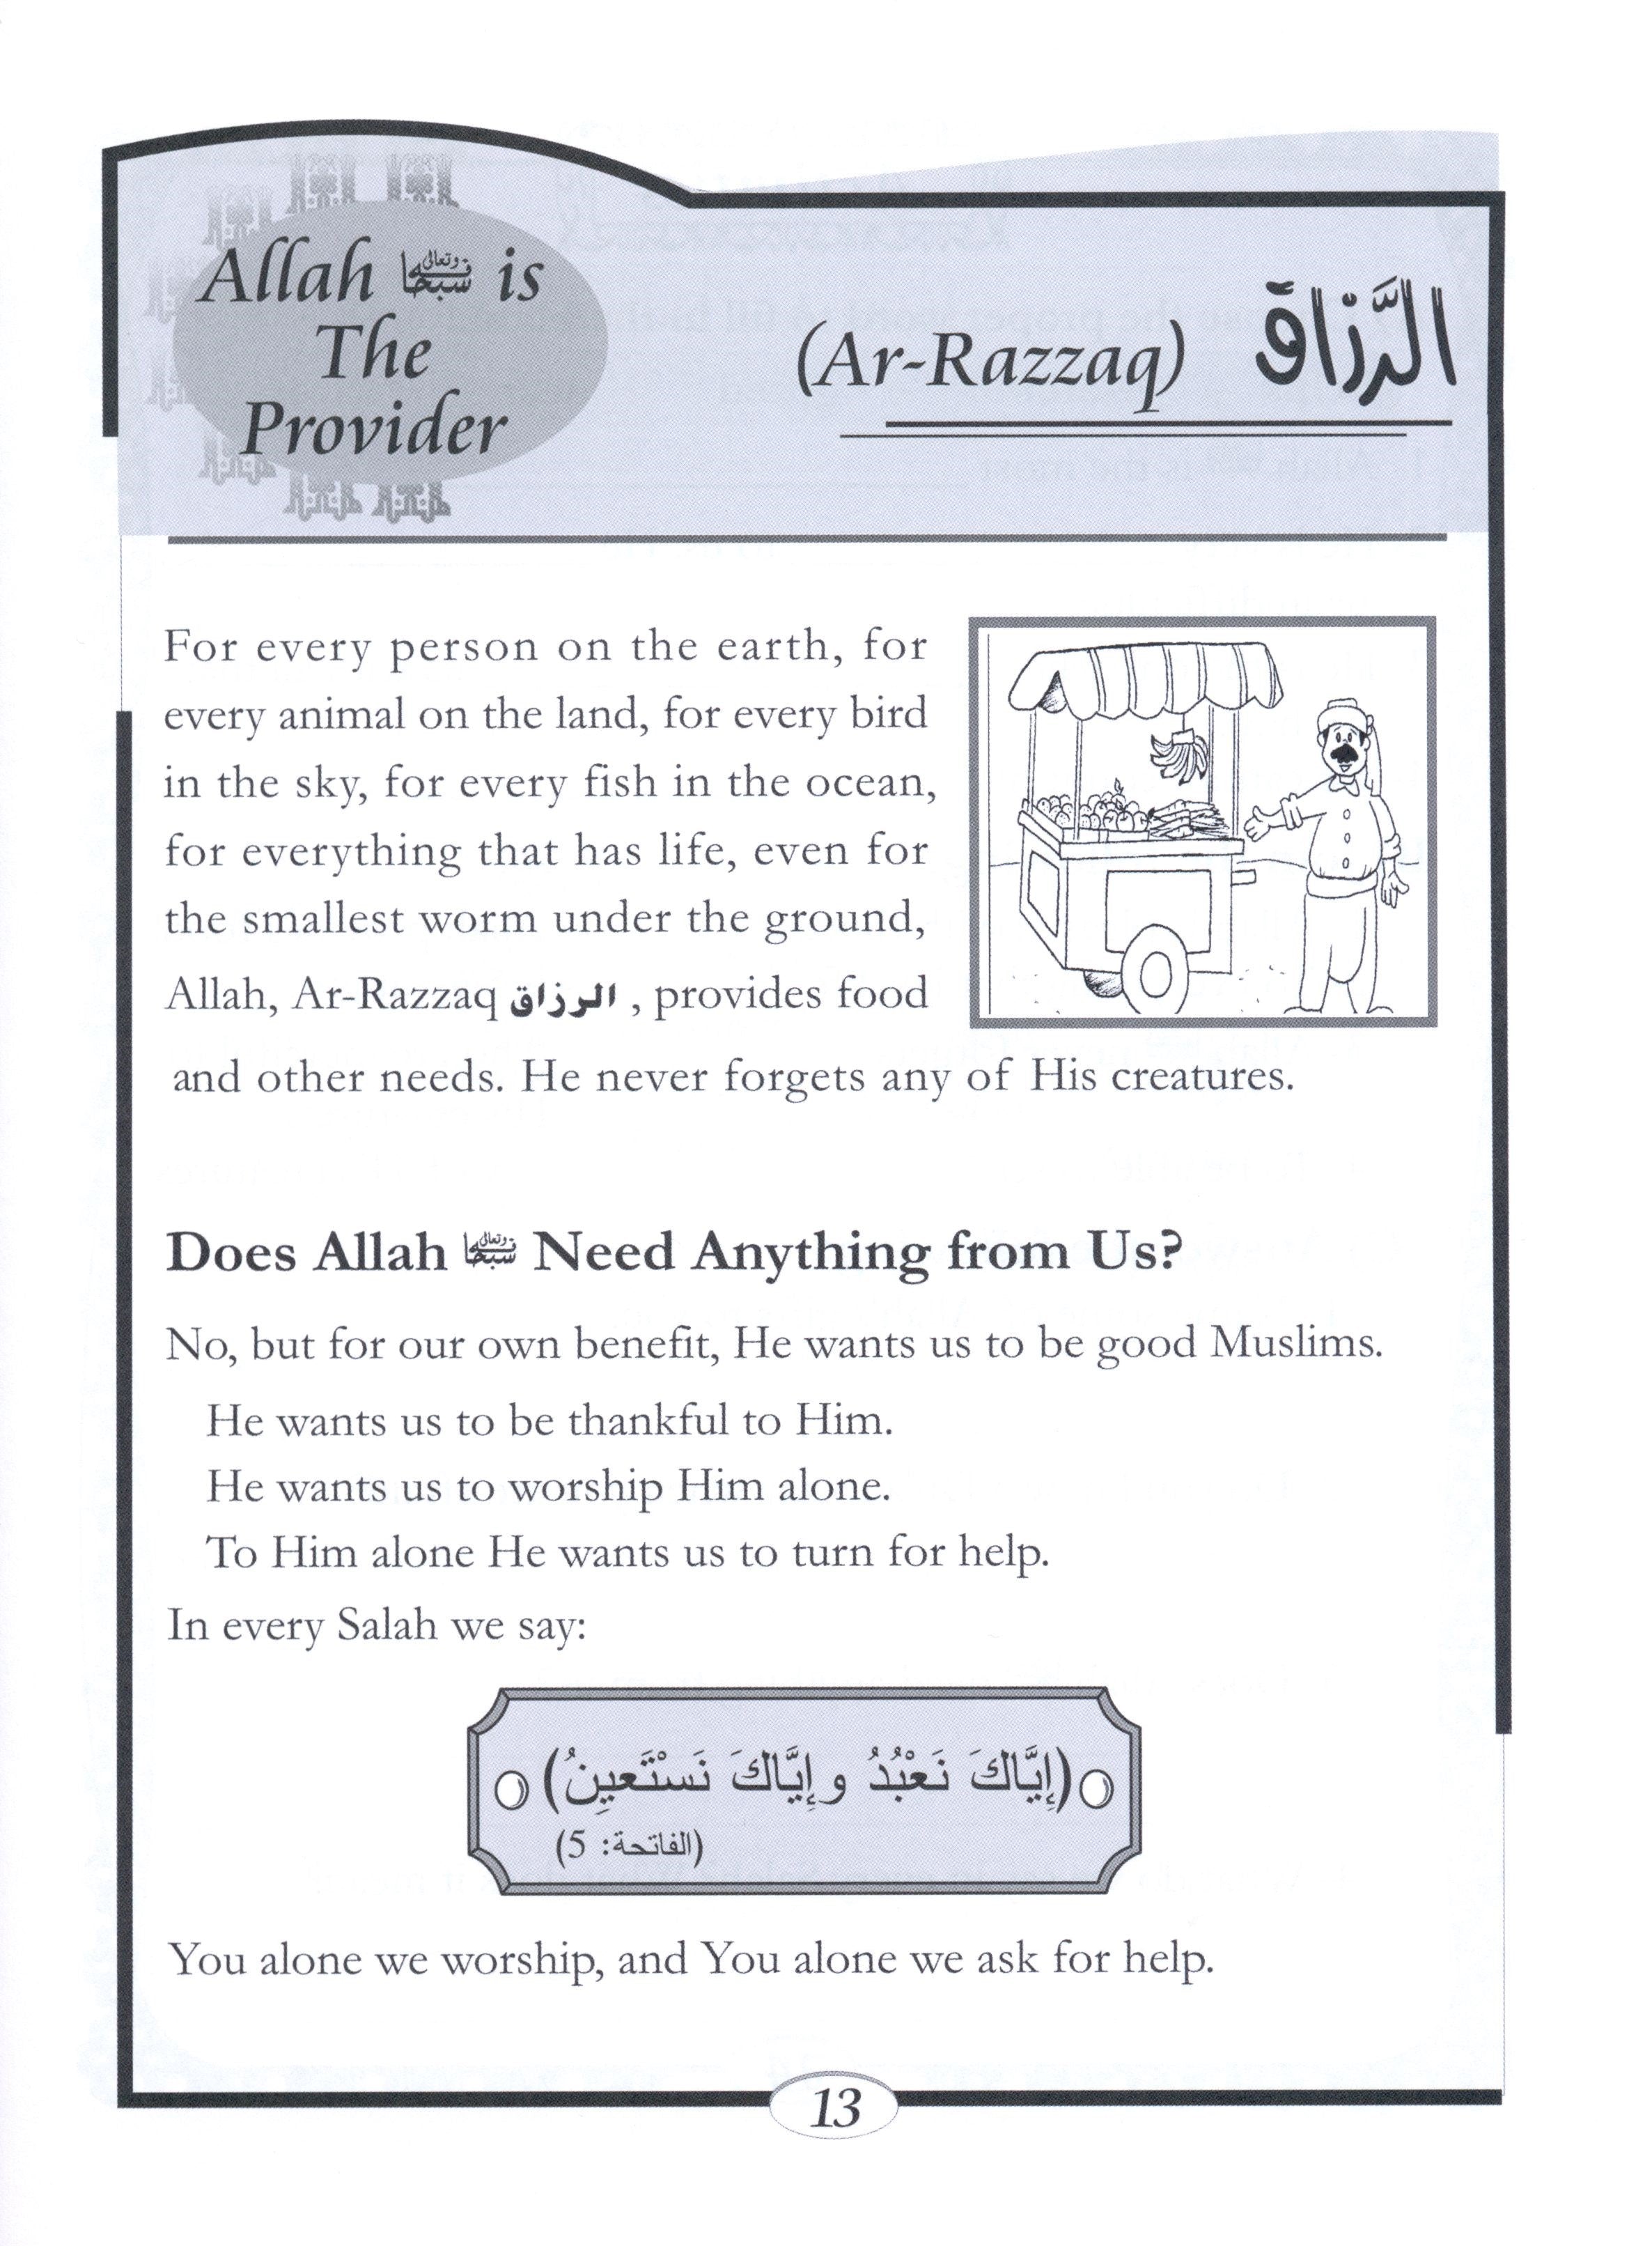 Allah سبحانه وتعالى is
The
Provider
(Ar-Razzaq) الرَّزاق
For every person on the earth, for
every animal on the land, for every bird
in the sky, for every fish in the ocean,
for everything that has life, even for
the smallest worm under the ground,
Allah, Ar-Razzaq الرزاق , provides food
and other needs. He never forgets any of His creatures.
Does Allah سبحانه وتعالى Need Anything from Us?
No, but for our own benefit, He wants us to be good Muslims.
He wants us to be thankful to Him.
He wants us to worship Him alone.
To Him alone He wants us to turn for help.
In every Salah we say:
(إِيَّاكَ نَعْبُدُ وإِيَّاكَ نَسْتَعِينُ)
(الفاتحة: 5)
You alone we worship, and You alone we ask for help.
13